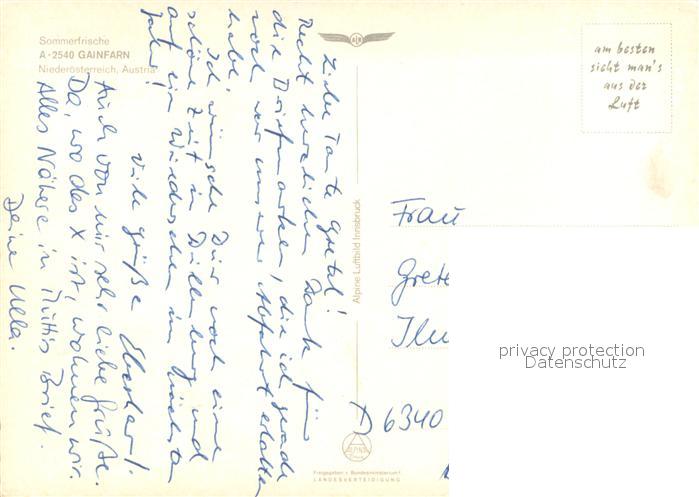 Sommerfrische
A-2540 GAINFARN
Niederösterreich, Austria
Liebe Tante Gretel!
Recht herzlichen Dank für
die Briefmarken, die ich gerade
noch vor unserer Abfahrt erhalten
habe.
Ich wünsche Dir noch eine
schöne Zeit in Dillenburg und
auf ein Wiedersehen im nächsten
Jahr!
Viele Grüße Eberhart.
Auch von mir sehr liebe Grüße.
Da, wo das X ist, wohnen wir.
Alles Nähere in Muttis Brief.
Deine Ulla.
Alpine Luftbild Innsbruck
am besten
sieht man's
aus der
Luft
Frau
Grete
D 6340
privacy protection
Datenschutz
ALPINE
Freigegeben v. Bundesministerium f.
LANDESVERTEIDIGUNG